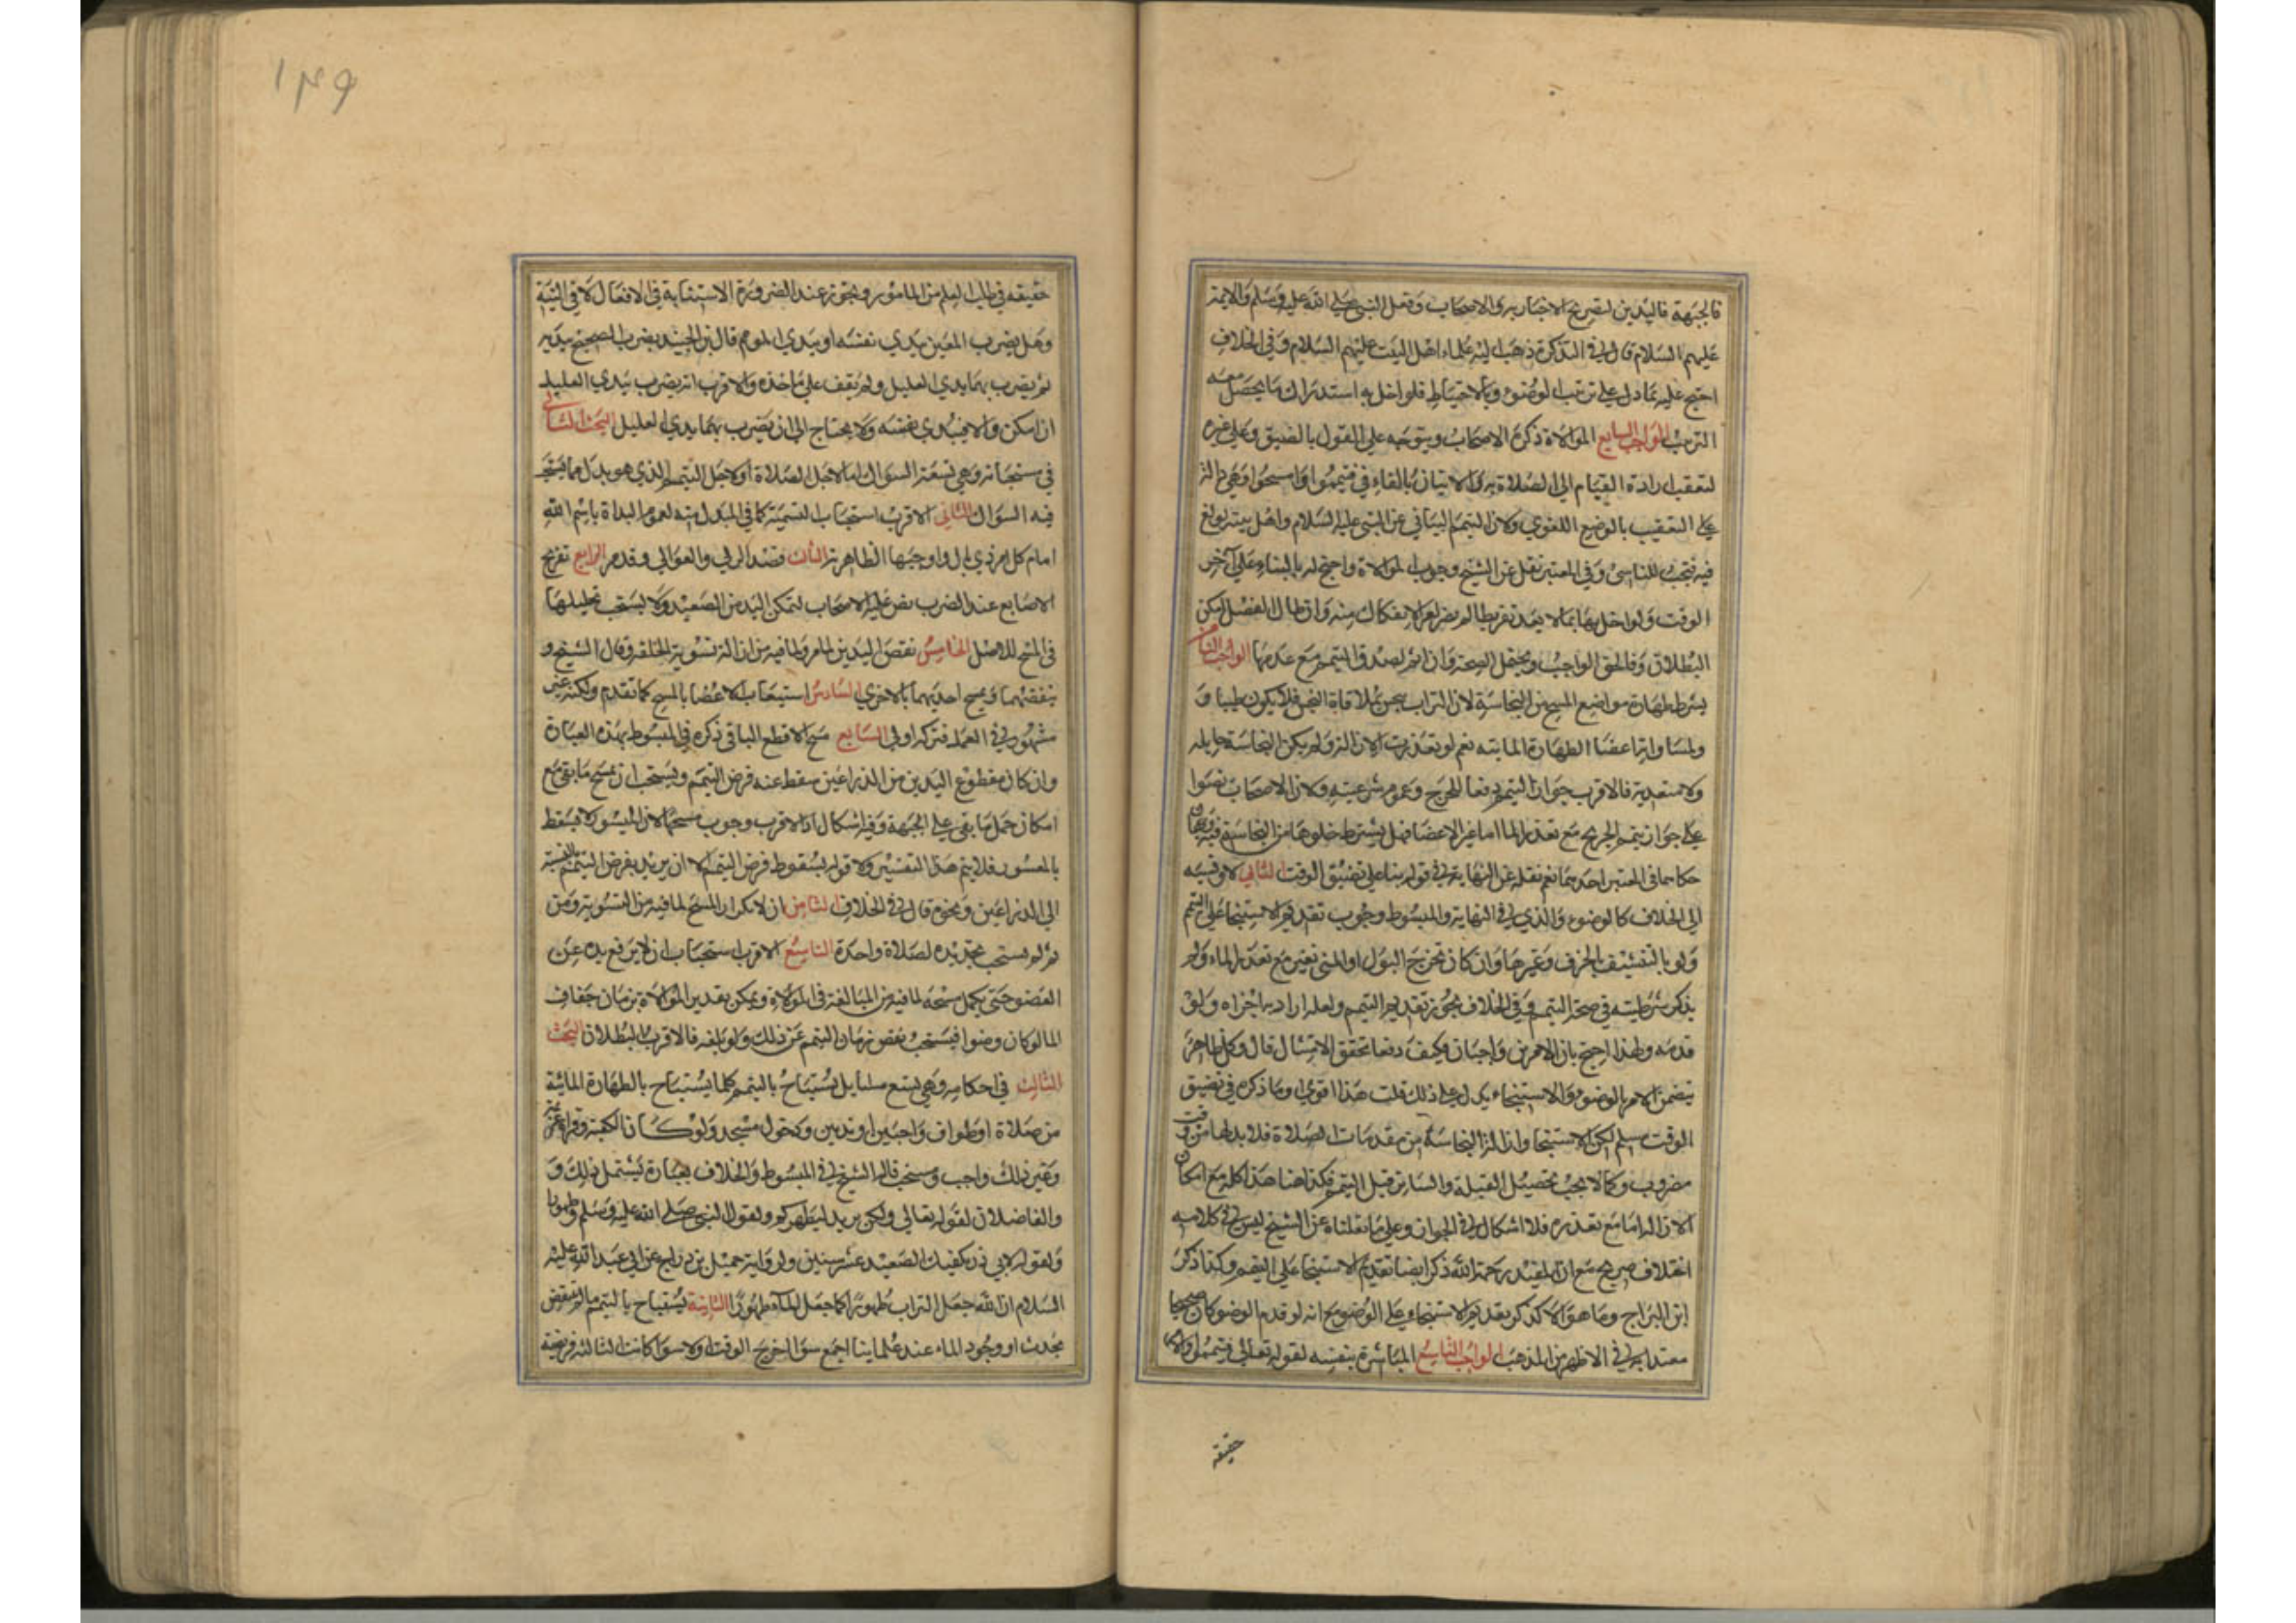 فالجبهة فاليدين لتصريح الاخبار به والاصحاب وفعل النبي صلى الله عليه وسلم والايمة
عليهم السلام قال في التذكرة ذهب اليه علماء اهل البيت عليهم السلام وفي الخلاف
احتج عليه بما دل على ترتيب الوضوء وبالاحتياط فلو اخل به استدرك ما يحصل معه
الترتيب الواجب السابع الموالاة ذكره الاصحاب ويتوجه على القول بالضيق وعلى غيره
لتعقيب ارادة القيام الى الصلاة به والاتيان بالفاء في فتيمموا وامسحوا وهي دالة
على التعقيب بالوضع اللغوي ولان التيمم البياني عن النبي عليه السلام واهل بيته توبع
فيه فيجب للتاسي وفي المعتبر نقل عن الشيخ وجوب الموالاة واحتج له بالبناء على آخر
الوقت ولو اخل بها بما لا يعد تفريقا لم يضر لعسر الانفكاك منه وان طال الفصل امكن
البطلان وفا لحق الواجب ويحتمل الصحة وان اثم لصدق التيمم مع عدمها الواجب الثامن
يشترط طهارة مواضع المسح من النجاسة لان التراب ينجس بملاقاة النجس فلا يكون طيبا و
لمساواته اعضا الطهارة المايية نعم لو تعذرت الازالة ولم يكن النجاسة حايله
ولا متعدية فالاقرب جواز التيمم دفعا للحرج وعموم شرعيته ولان الاصحاب نصوا
على جواز تيمم الجريح مع تعذر الما اما غير الاعضا فهل يشترط خلوها من النجاسة فيه وجهان
حكاهما في المعتبر احدهما نعم نقله عن النهاية في قوله بناء على تضيق الوقت الثاني لا وتنسبه
الى الخلاف كالوضوء والذي في النهاية والمبسوط وجوب تقديم الاستنجا على التيمم
ولو بالتنشيف بالخزف وغيرها وان كان مخرج البول او المني تعين مع تعذر الماء ولم
يذكر شرطيته في صحة التيمم وفي الخلاف يجوز تقديم التيمم ولعله اراد به اجزاه ولو
قدمه ولهذا احتج بان الامرين واجبان وكيف دفعا تحقق الامتثال قال وكل ظاهر
يتضمن الامر بالوضوء والاستنجاء يدل على ذلك قلت هذا اقوى وما ذكره في تضيق
الوقت مسلم لكن الاستنجا وازالة النجاسة من مقدمات الصلاة فلا بد لها من وقت
مضروب وكما لا يجب تحصيل القبلة والساتر قبل التيمم فكذا هنا هذا كله مع امكان
الازالة اما مع تعذره فلا اشكال في الجواز وعلى ما نقلناه عن الشيخ ليس في كلامه
اختلاف صريح مع ان المفيد رحمة الله ذكر ايضا تقديم الاستنجا على التيمم وكذا ذكر
ابن البراج وما هو الا كذكر تقديم الاستنجا على الوضوء مع انه لو قدم الوضو كان صحيحا
معتدا به في الاظهر من المذهب الواجب التاسع المباشرة بنفسه لقوله تعالى فتيمموا والامر
حقيقة
١٤٩
حقيقة في طلب الفعل من المامور ويجوز عند الضرورة الاستنابة في الافعال لا في النية
وهل يضرب المعين بيدي نفسه او بيدي الموم قال ابن الجنيد يضرب الصحيح بيديه
ثم يضرب بهما يدي العليل ولم نقف على ماخذه والاقرب انه يضرب بيدي العليل
ان امكن والا فبيدي نفسه ولا يحتاج الى ان يضرب بهما يدي العليل البحث الثاني
في مستحباته وهي تسعة السواك اما لاجل الصلاة او لاجل التيمم الذي هو بدل مما يستحب
فيه السواك الثاني الاقرب استحباب التسمية كما في المبدل منه لعموم البداة باسم الله
امام كل امر ذي بال واوجبها الظاهرية الثالث قصد الربي والعوالي وقد مر الرابع تفريج
الاصابع عند الضرب نص عليه الاصحاب لتمكن اليد من الصعيد ولا يستحب تخليلها
في المسح للاصل الخامس نفض اليدين لما مر ولما فيه من ازالة تشويه الخلقة وقال الشيخ و
ينفضهما ويمسح احديهما بالاخرى السادس استيعاب الاعضا بالمسح كما تقدم ولكنه غير
مشهور في العمل فتركه اولى السابع مسح الاقطع الباقي ذكره في المبسوط بهذه العبارة
وان كان مقطوع اليدين من الذراعين سقط عنه فرض التيمم ويستحب ان يمسح ما بقي مع
امكان حمل ما بقي على الجبهة وفيه اشكال اذ الاقرب وجوب مسحها لان الميسور لا يسقط
بالمعسور فلا يتم هذا التفسير ولا قوله بسقوط فرض التيمم الا ان يريد بفرض التيمم بالنسبة
الى الذراعين ونحوه قال في الخلاف الثامن ان لا يكرر المسح لما فيه من التشويه ومن
ثم لم يستحب تجديده لصلاة واحدة التاسع الاقرب استحباب ان لا يرفع يده عن
العضو حتى يكمل مسحه لما فيه من المبالغة في الموالاة ويمكن تقدير الموالاة بزمان جفاف
الما لو كان وضوا فيستحب نقص زمان التيمم عن ذلك ولو بلغه فالاقرب البطلان البحث
الثالث في احكامه وهي تسع مسايل يستباح بالتيمم كلما يستباح بالطهارة المائية
من صلاة او طواف واجبين او ندبين ودخول مسجد ولو كان الكعبة وقراة عزيمة
وغير ذلك واجب ومستحب قاله الشيخ في المبسوط والخلاف بعبارة تشتمل ذلك و
والفاضلان لقوله تعالى ولكن يريد ليطهركم ولقول النبي صلى الله عليه وسلم وطهورا
ولقوله لابي ذر يكفيك الصعيد عشر سنين ولرواية جميل بن دراج عن ابي عبد الله عليه
السلام ان الله جعل التراب طهورا كما جعل الماء طهورا الثانية يستباح بالتيمم ما لم ينتقض
بحدث او وجود الماء عند علماينا اجمع سوا خرج الوقت اولا سوا كانت الثالثة فريضة